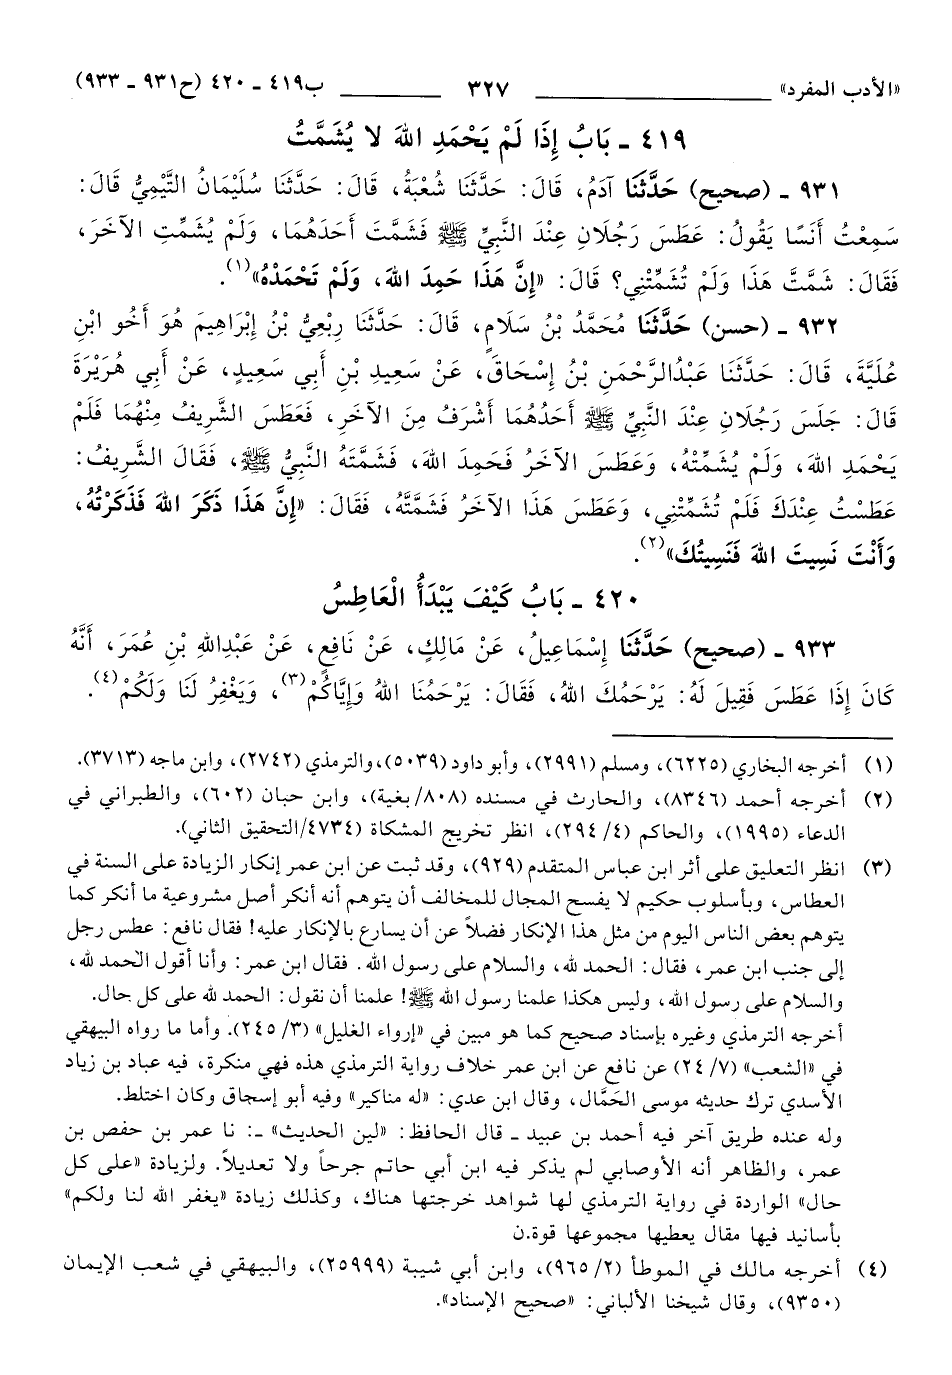 «الأدب المفرد» ٣٢٧ ب٤١٩ ـ ٤٢٠ (ح٩٣١ ـ ٩٣٣)
٤١٩ ـ بَابُ إِذَا لَمْ يَحْمَدِ اللهَ لا يُشَمَّتُ
٩٣١ ـ (صحيح) حَدَّثَنَا آدَمُ، قَالَ: حَدَّثَنَا شُعْبَةُ، قَالَ: حَدَّثَنَا سُلَيْمَانُ التَّيْمِيُّ قَالَ:
سَمِعْتُ أَنَسًا يَقُولُ: عَطَسَ رَجُلَانِ عِنْدَ النَّبِيِّ ﷺ فَشَمَّتَ أَحَدَهُمَا، وَلَمْ يُشَمِّتِ الآخَرَ،
فَقَالَ: شَمَّتَّ هَذَا وَلَمْ تُشَمِّتْنِي؟ قَالَ: «إِنَّ هَذَا حَمِدَ اللهَ، وَلَمْ تَحْمَدْهُ»(١).
٩٣٢ ـ (حسن) حَدَّثَنَا مُحَمَّدُ بْنُ سَلَامٍ، قَالَ: حَدَّثَنَا رِبْعِيُّ بْنُ إِبْرَاهِيمَ هُوَ أَخُو ابْنِ
عُلَيَّةَ، قَالَ: حَدَّثَنَا عَبْدُالرَّحْمَنِ بْنُ إِسْحَاقَ، عَنْ سَعِيدِ بْنِ أَبِي سَعِيدٍ، عَنْ أَبِي هُرَيْرَةَ
قَالَ: جَلَسَ رَجُلَانِ عِنْدَ النَّبِيِّ ﷺ أَحَدُهُمَا أَشْرَفُ مِنَ الآخَرِ، فَعَطَسَ الشَّرِيفُ مِنْهُمَا فَلَمْ
يَحْمَدِ اللهَ، وَلَمْ يُشَمِّتْهُ، وَعَطَسَ الآخَرُ فَحَمِدَ اللهَ، فَشَمَّتَهُ النَّبِيُّ ﷺ، فَقَالَ الشَّرِيفُ:
عَطَسْتُ عِنْدَكَ فَلَمْ تُشَمِّتْنِي، وَعَطَسَ هَذَا الآخَرُ فَشَمَّتَّهُ، فَقَالَ: «إِنَّ هَذَا ذَكَرَ اللهَ فَذَكَرْتُهُ،
وَأَنْتَ نَسِيتَ اللهَ فَنَسِيتُكَ»(٢).
٤٢٠ ـ بَابُ كَيْفَ يَبْدَأُ الْعَاطِسُ
٩٣٣ ـ (صحيح) حَدَّثَنَا إِسْمَاعِيلُ، عَنْ مَالِكٍ، عَنْ نَافِعٍ، عَنْ عَبْدِاللهِ بْنِ عُمَرَ، أَنَّهُ
كَانَ إِذَا عَطَسَ فَقِيلَ لَهُ: يَرْحَمُكَ اللهُ، فَقَالَ: يَرْحَمُنَا اللهُ وَإِيَّاكُمْ(٣)، وَيَغْفِرُ لَنَا وَلَكُمْ(٤).
(١) أخرجه البخاري (٦٢٢٥)، ومسلم (٢٩٩١)، وأبو داود (٥٠٣٩)،والترمذي (٢٧٤٢)، وابن ماجه (٣٧١٣).
(٢) أخرجه أحمد (٨٣٤٦)، والحارث في مسنده (٨٠٨/بغية)، وابن حبان (٦٠٢)، والطبراني في
الدعاء (١٩٩٥)، والحاكم (٤/ ٢٩٤)، انظر تخريج المشكاة (٤٧٣٤/التحقيق الثاني).
(٣) انظر التعليق على أثر ابن عباس المتقدم (٩٢٩)، وقد ثبت عن ابن عمر إنكار الزيادة على السنة في
العطاس، وبأسلوب حكيم لا يفسح المجال للمخالف أن يتوهم أنه أنكر أصل مشروعية ما أنكر كما
يتوهم بعض الناس اليوم من مثل هذا الإنكار فضلاً عن أن يسارع بالإنكار عليه! فقال نافع: عطس رجل
إلى جنب ابن عمر، فقال: الحمد لله، والسلام على رسول الله. فقال ابن عمر: وأنا أقول الحمد لله،
والسلام على رسول الله، وليس هكذا علمنا رسول الله ﷺ! علمنا أن نقول: الحمد لله على كل حال.
أخرجه الترمذي وغيره بإسناد صحيح كما هو مبين في «إرواء الغليل» (٣/ ٢٤٥). وأما ما رواه البيهقي
في «الشعب» (٧/ ٢٤) عن نافع عن ابن عمر خلاف رواية الترمذي هذه فهي منكرة، فيه عباد بن زياد
الأسدي ترك حديثه موسى الحَمَّال، وقال ابن عدي: «له مناكير» وفيه أبو إسجاق وكان اختلط.
وله عنده طريق آخر فيه أحمد بن عبيد ـ قال الحافظ: «لين الحديث» ـ: نا عمر بن حفص بن
عمر، والظاهر أنه الأوصابي لم يذكر فيه ابن أبي حاتم جرحاً ولا تعديلاً. ولزيادة «على كل
حال» الواردة في رواية الترمذي لها شواهد خرجتها هناك، وكذلك زيادة «يغفر الله لنا ولكم»
بأسانيد فيها مقال يعطيها مجموعها قوة.ن
(٤) أخرجه مالك في الموطأ (٢/ ٩٦٥)، وابن أبي شيبة (٢٥٩٩٩)، والبيهقي في شعب الإيمان
(٩٣٥٠)، وقال شيخنا الألباني: «صحيح الإسناد».